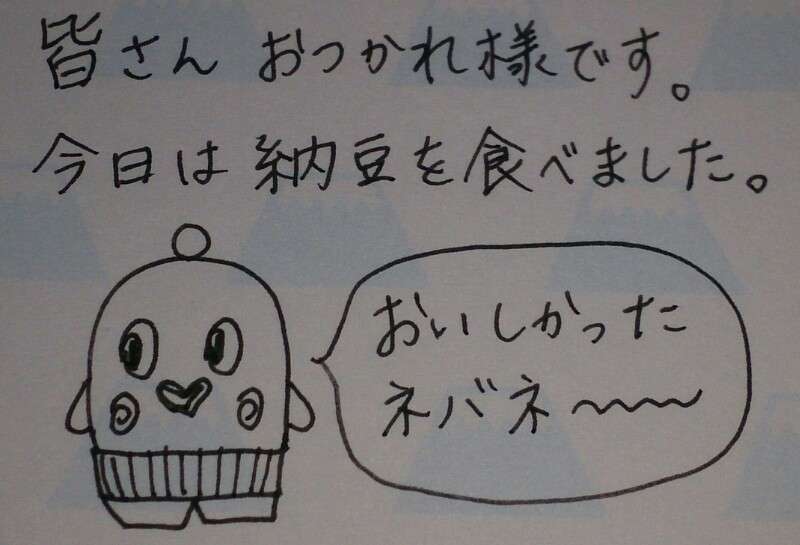 皆さん おつかれ様です。
今日は納豆を食べました。
おいしかった
ネバネ〜〜〜